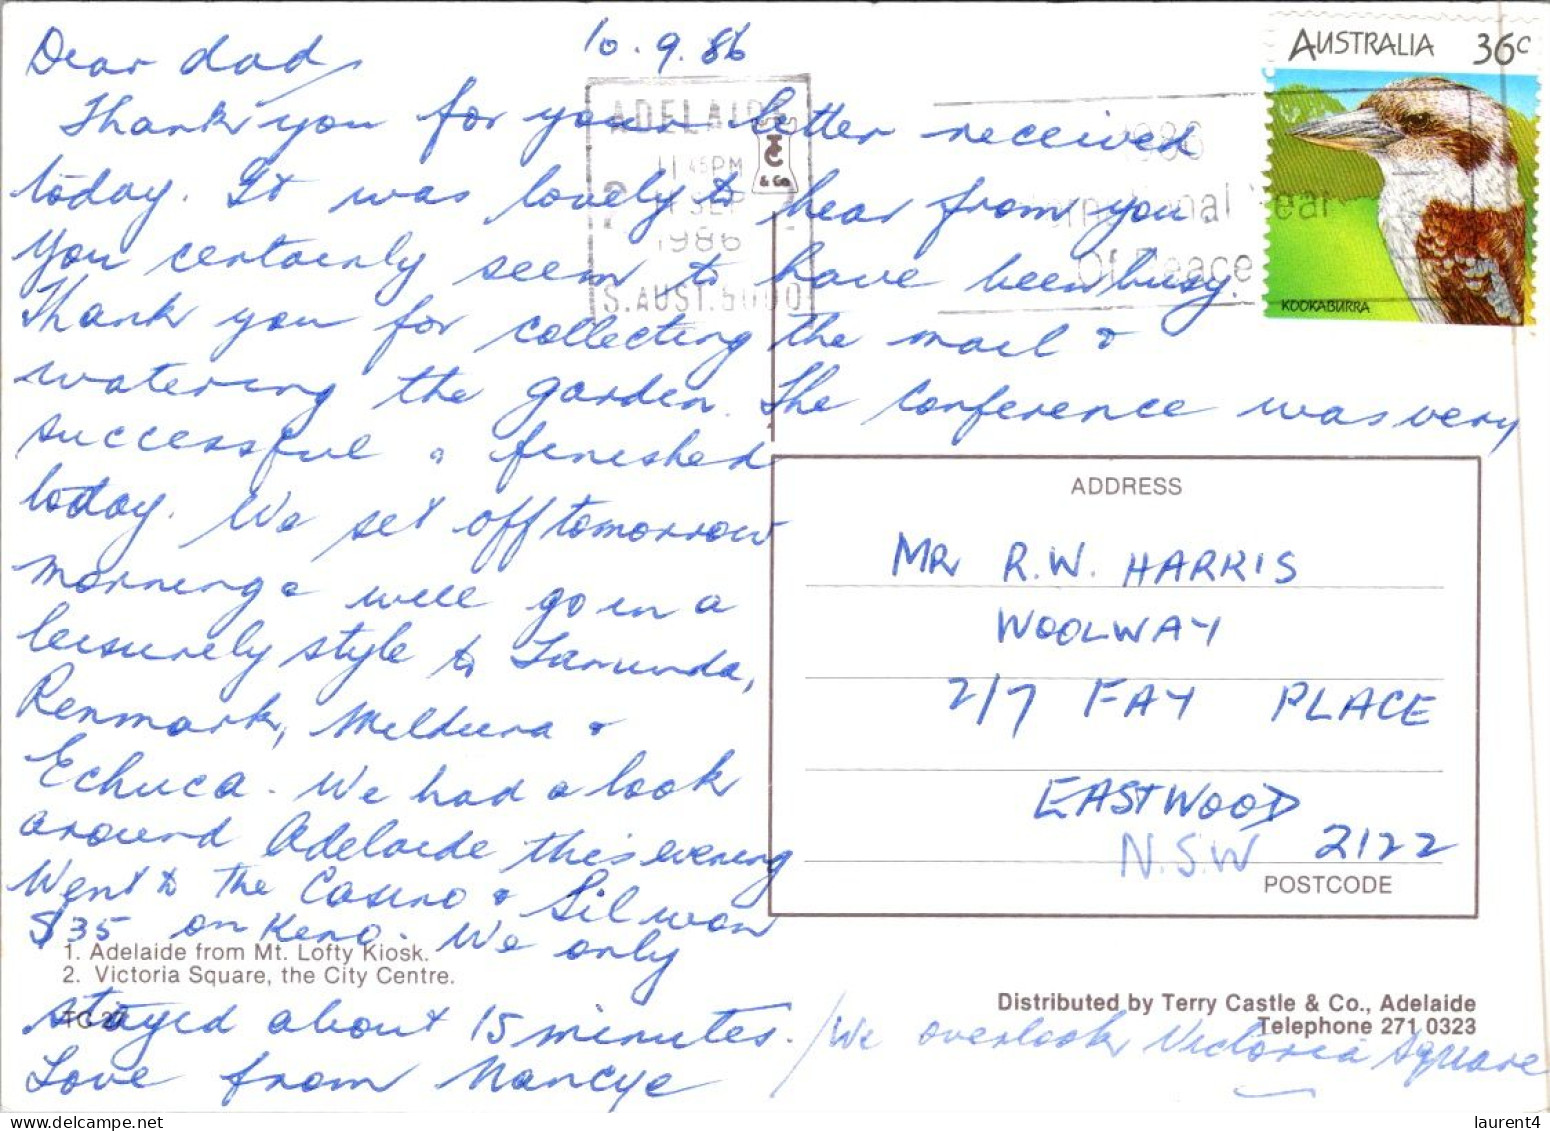 10.9.86
Dear dad,
Thank you for your letter received
today. It was lovely to hear from you.
You certainly seem to have been busy.
Thank you for collecting the mail &
watering the garden. The conference was very
successful & finished
today. We set off tomorrow
morning & will go in a
leisurely style to Tanunda,
Renmark, Mildura &
Echuca. We had a look
around Adelaide this evening
Went to the Casino & Sil won
$35 on Keno. We only
stayed about 15 minutes. / We overlook Victoria Square
Love from Nancye
AUSTRALIA 36c
KOOKABURRA
ADELAIDE
TC
& Co
11 45PM
SEP
1986
S.AUST. 5000
1986
International Year
Of Peace
ADDRESS
MR R.W. HARRIS
WOOLWAY
2/7 FAY PLACE
EASTWOOD
N.S.W 2122
POSTCODE
1. Adelaide from Mt. Lofty Kiosk.
2. Victoria Square, the City Centre.
Distributed by Terry Castle & Co., Adelaide
Telephone 271 0323
laurent4